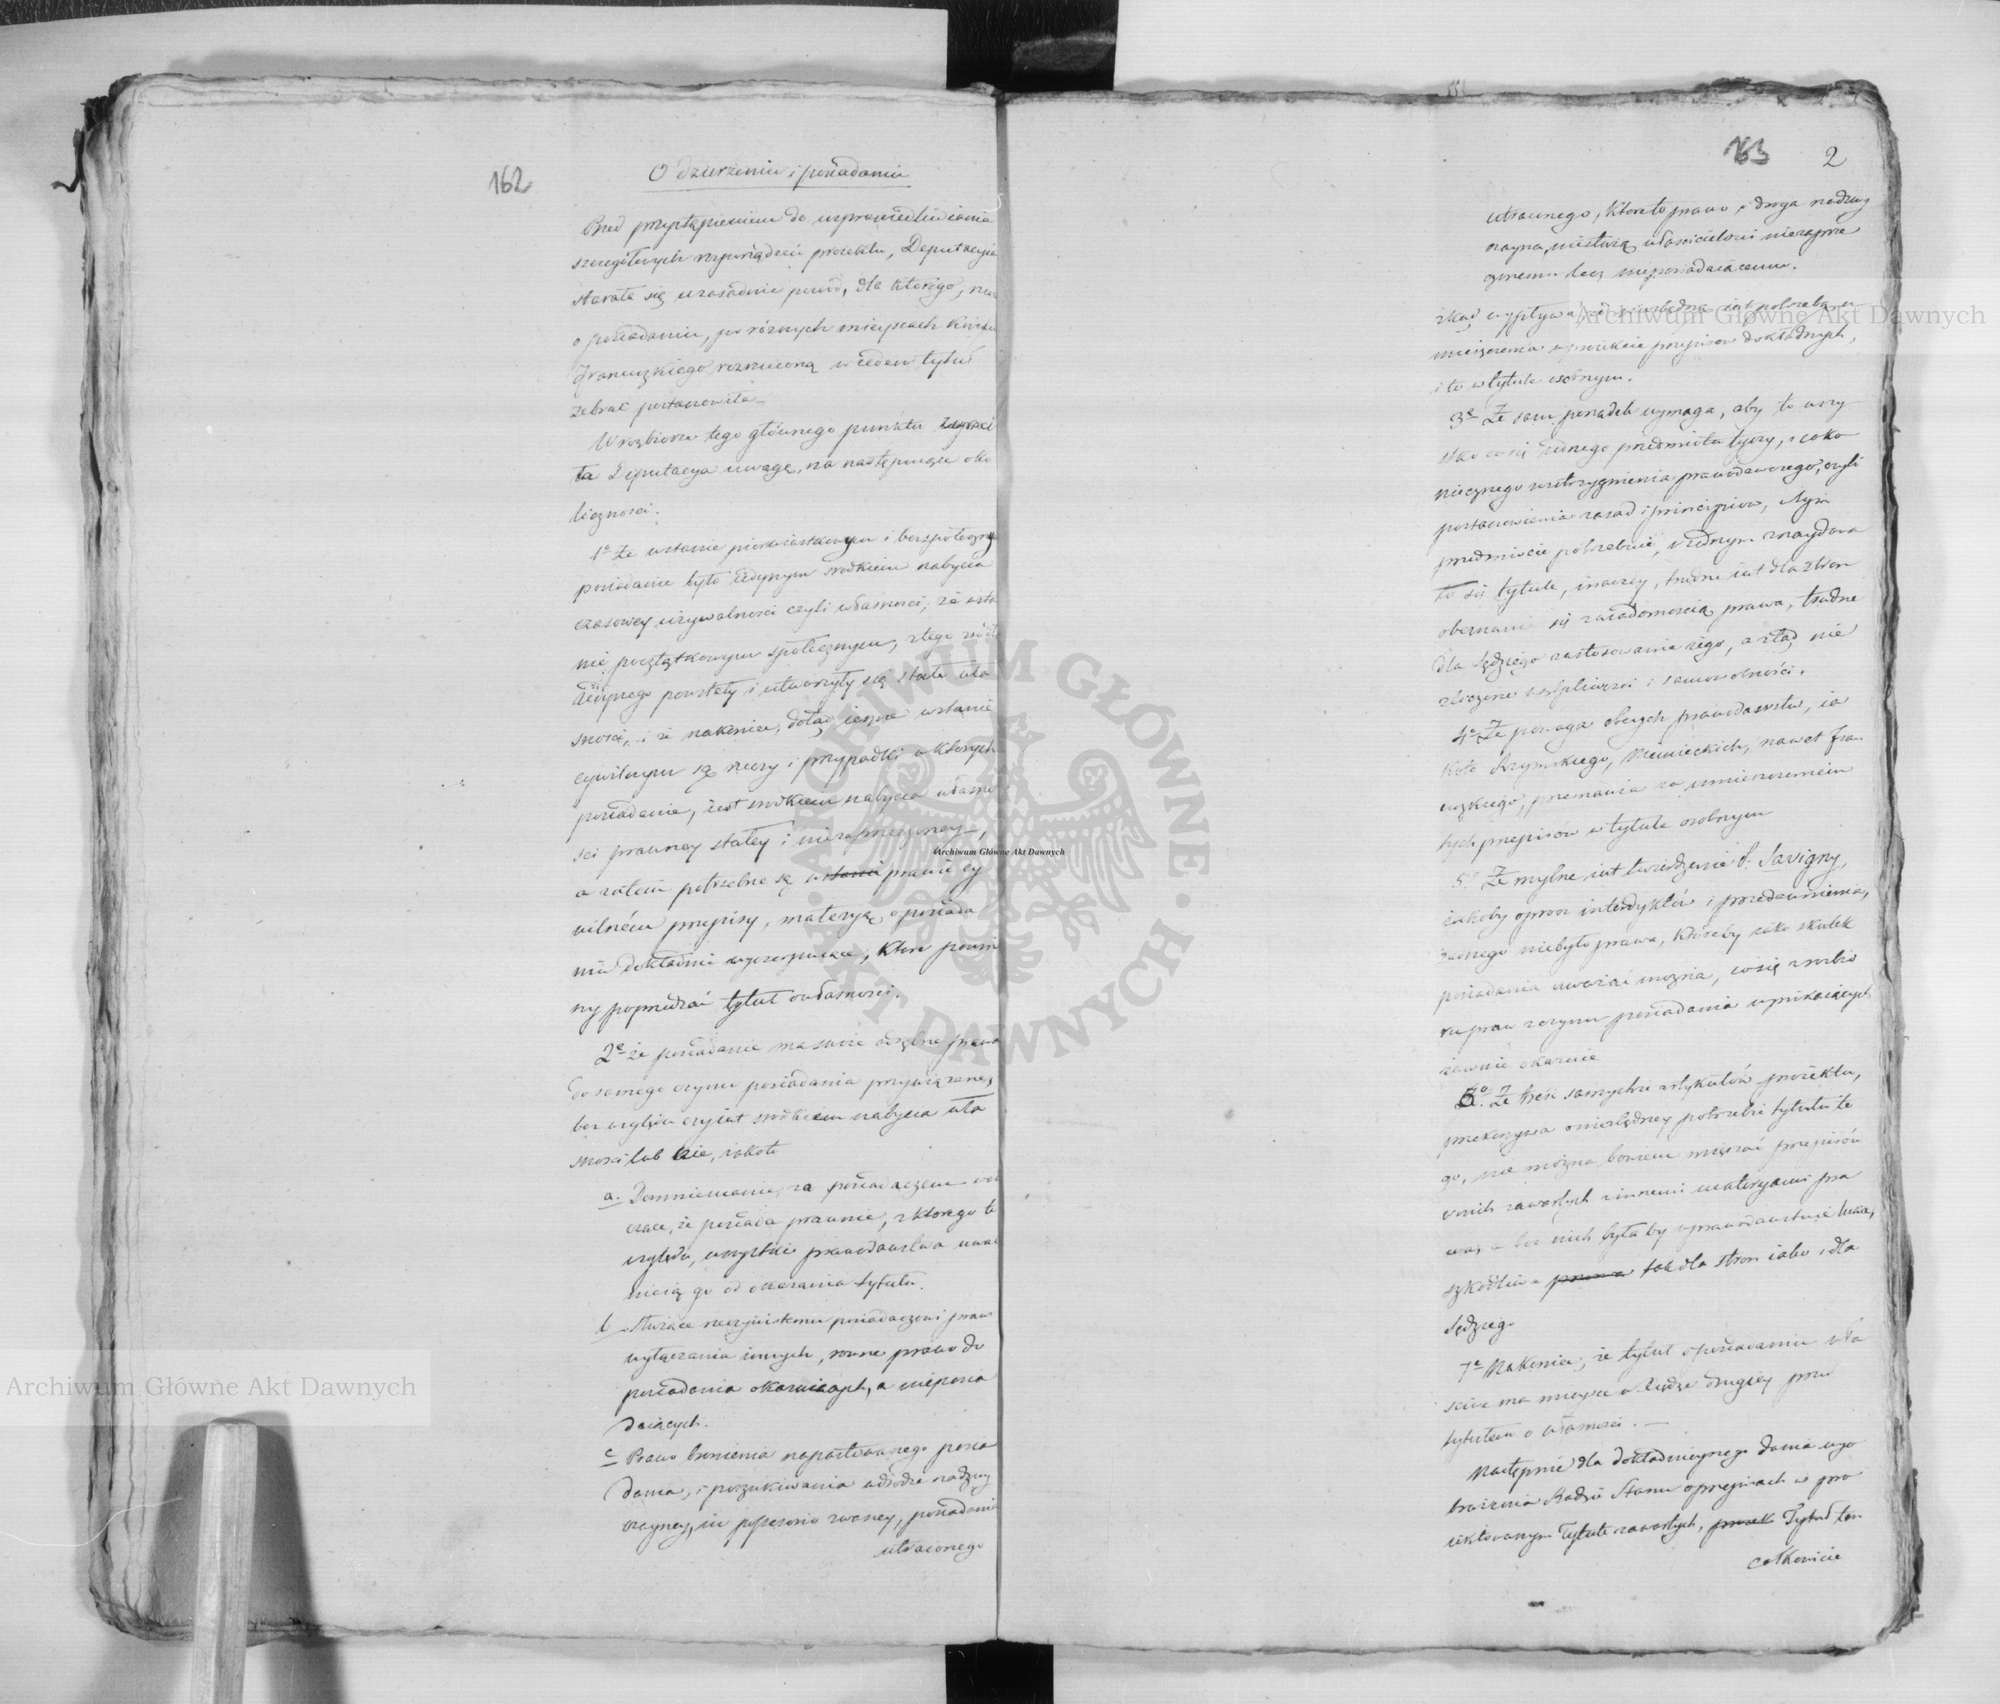 162
O dzierżeniu i posiadaniu
Przed przystąpieniem do usprawiedliwienia
szczegółowych rozporządzeń proiektu, Deputacyia
starała się uzasadnić powód, dla którego,
o posiadaniu, po różnych mieyscach
Francuzkiego rozrzuconą w ieden tytuł
zebrać postanowiła
W rozbiorze tego głównego punktu
ła Deputacya uwagę, na następuiące oko
liczności.
1e Że w stanie pierwiastkowym i bezspołeczny
posiadanie było iedynym środkiem nabycia
czasowey używalności czyli własności; że w sta
nie początkowym społecznym, z tego źródł
iedynego powstały i utworzyły się stałe wła
sności, i że nakoniec, dotąd ieszcze w stanie
cywilnym są rzeczy i przypadki w których
posiadanie, iest środkiem nabycia własno
ści prawney stałey i niezaprzeczoney,
a zatem potrzebne są w prawie cy
wilném przepisy, materyą o posiada
niu dokładnie wyczerpuiące, które powin
ny poprzedzać tytuł o własności.
2e że posiadanie ma swoie oddzielne prawa
do samego czynu posiadania przywiązane,
bez względu czy iest środkiem nabycia wła
sności lub nie, iakoto
a. Domniemanie za posiadaczem wal
czące, że posiada prawnie, z którego to
względu, wszystkie prawodawstwa uwal
niaią go od okazania tytułu.
b. Służące rzeczywistemu posiadaczowi prawo
wyłączania innych, równe prawo do
posiadania okazuiących, a nieposia
daiących.
c Prawo bronienia napastowanego posia
dania, i poszukiwania w drodze nadzwy
czayney, in possessorio zwaney, posiadania
utraconego
163 2
utraconego, któreto prawo i droga nadzwy
czayna, niesłużą właścicielowi niezaprze
czonemu lecz nieposiadaiącemu.
zkąd wypływa, że niezbędna iest potrzeba u
mieszczenia w proiekcie przepisów dokładnych,
i to w tytule osobnym.
3e Że sam porządek wymaga, aby to wszy
stko co się iednego przedmiotu tyczy, i iako
niecznego rozstrzygnienia prawodawczego, czyli
postanowienia zasad i principiów, w tym
przedmiocie potrzebnie, w iednym znaydowa
ło się tytule, inaczey, trudne iest dla stron
obeznanie się z wiadomością prawa, trudne
dla Sędziego zastosowanie iego, a ztąd nie
zliczone wątpliwości i samowolności.
4e Że powaga obcych prawodawstw, ia
koto Rzymskiego, Niemieckich, nawet Fra
cuzkiego, przemawia za umieszczeniem
tych przepisów w tytule osobnym
5e Że mylne iest twierdzenie P. Savigny,
iakoby oprócz interdyktów i przedawnienia,
żadnego niebyło prawa, któreby iako skutek
posiadania uważać można, co się z rozbio
ru praw z czynu posiadania wynikaiących
iawnie okazuie
6o. Że treść samychże artykułów proiektu,
przekonywa o niezbędney potrzebie tytułu te
go, nie można bowiem mięszać przepisów
w nich zawartych z innemi materyami pra
wa, a bez nich byłaby w prawodawstwie luka,
szkodliwa prawa tak dla stron iako i dla
Sędziego
7e Nakoniec, że tytuł o posiadaniu wła
ściwe ma mieysce w Xiędze drugiey przed
tytułem o własności. —
Następnie dla dokładnieyszego dania wyo
brażenia Radzie Stanu o przepisach w pro
iektowanym Tytule zawartych, Tytuł ten
całkowicie
Archiwum Główne Akt Dawnych
Archiwum Główne Akt Dawnych
Archiwum Główne Akt Dawnych
ARCHIWUM GŁÓWNE AKT DAWNYCH